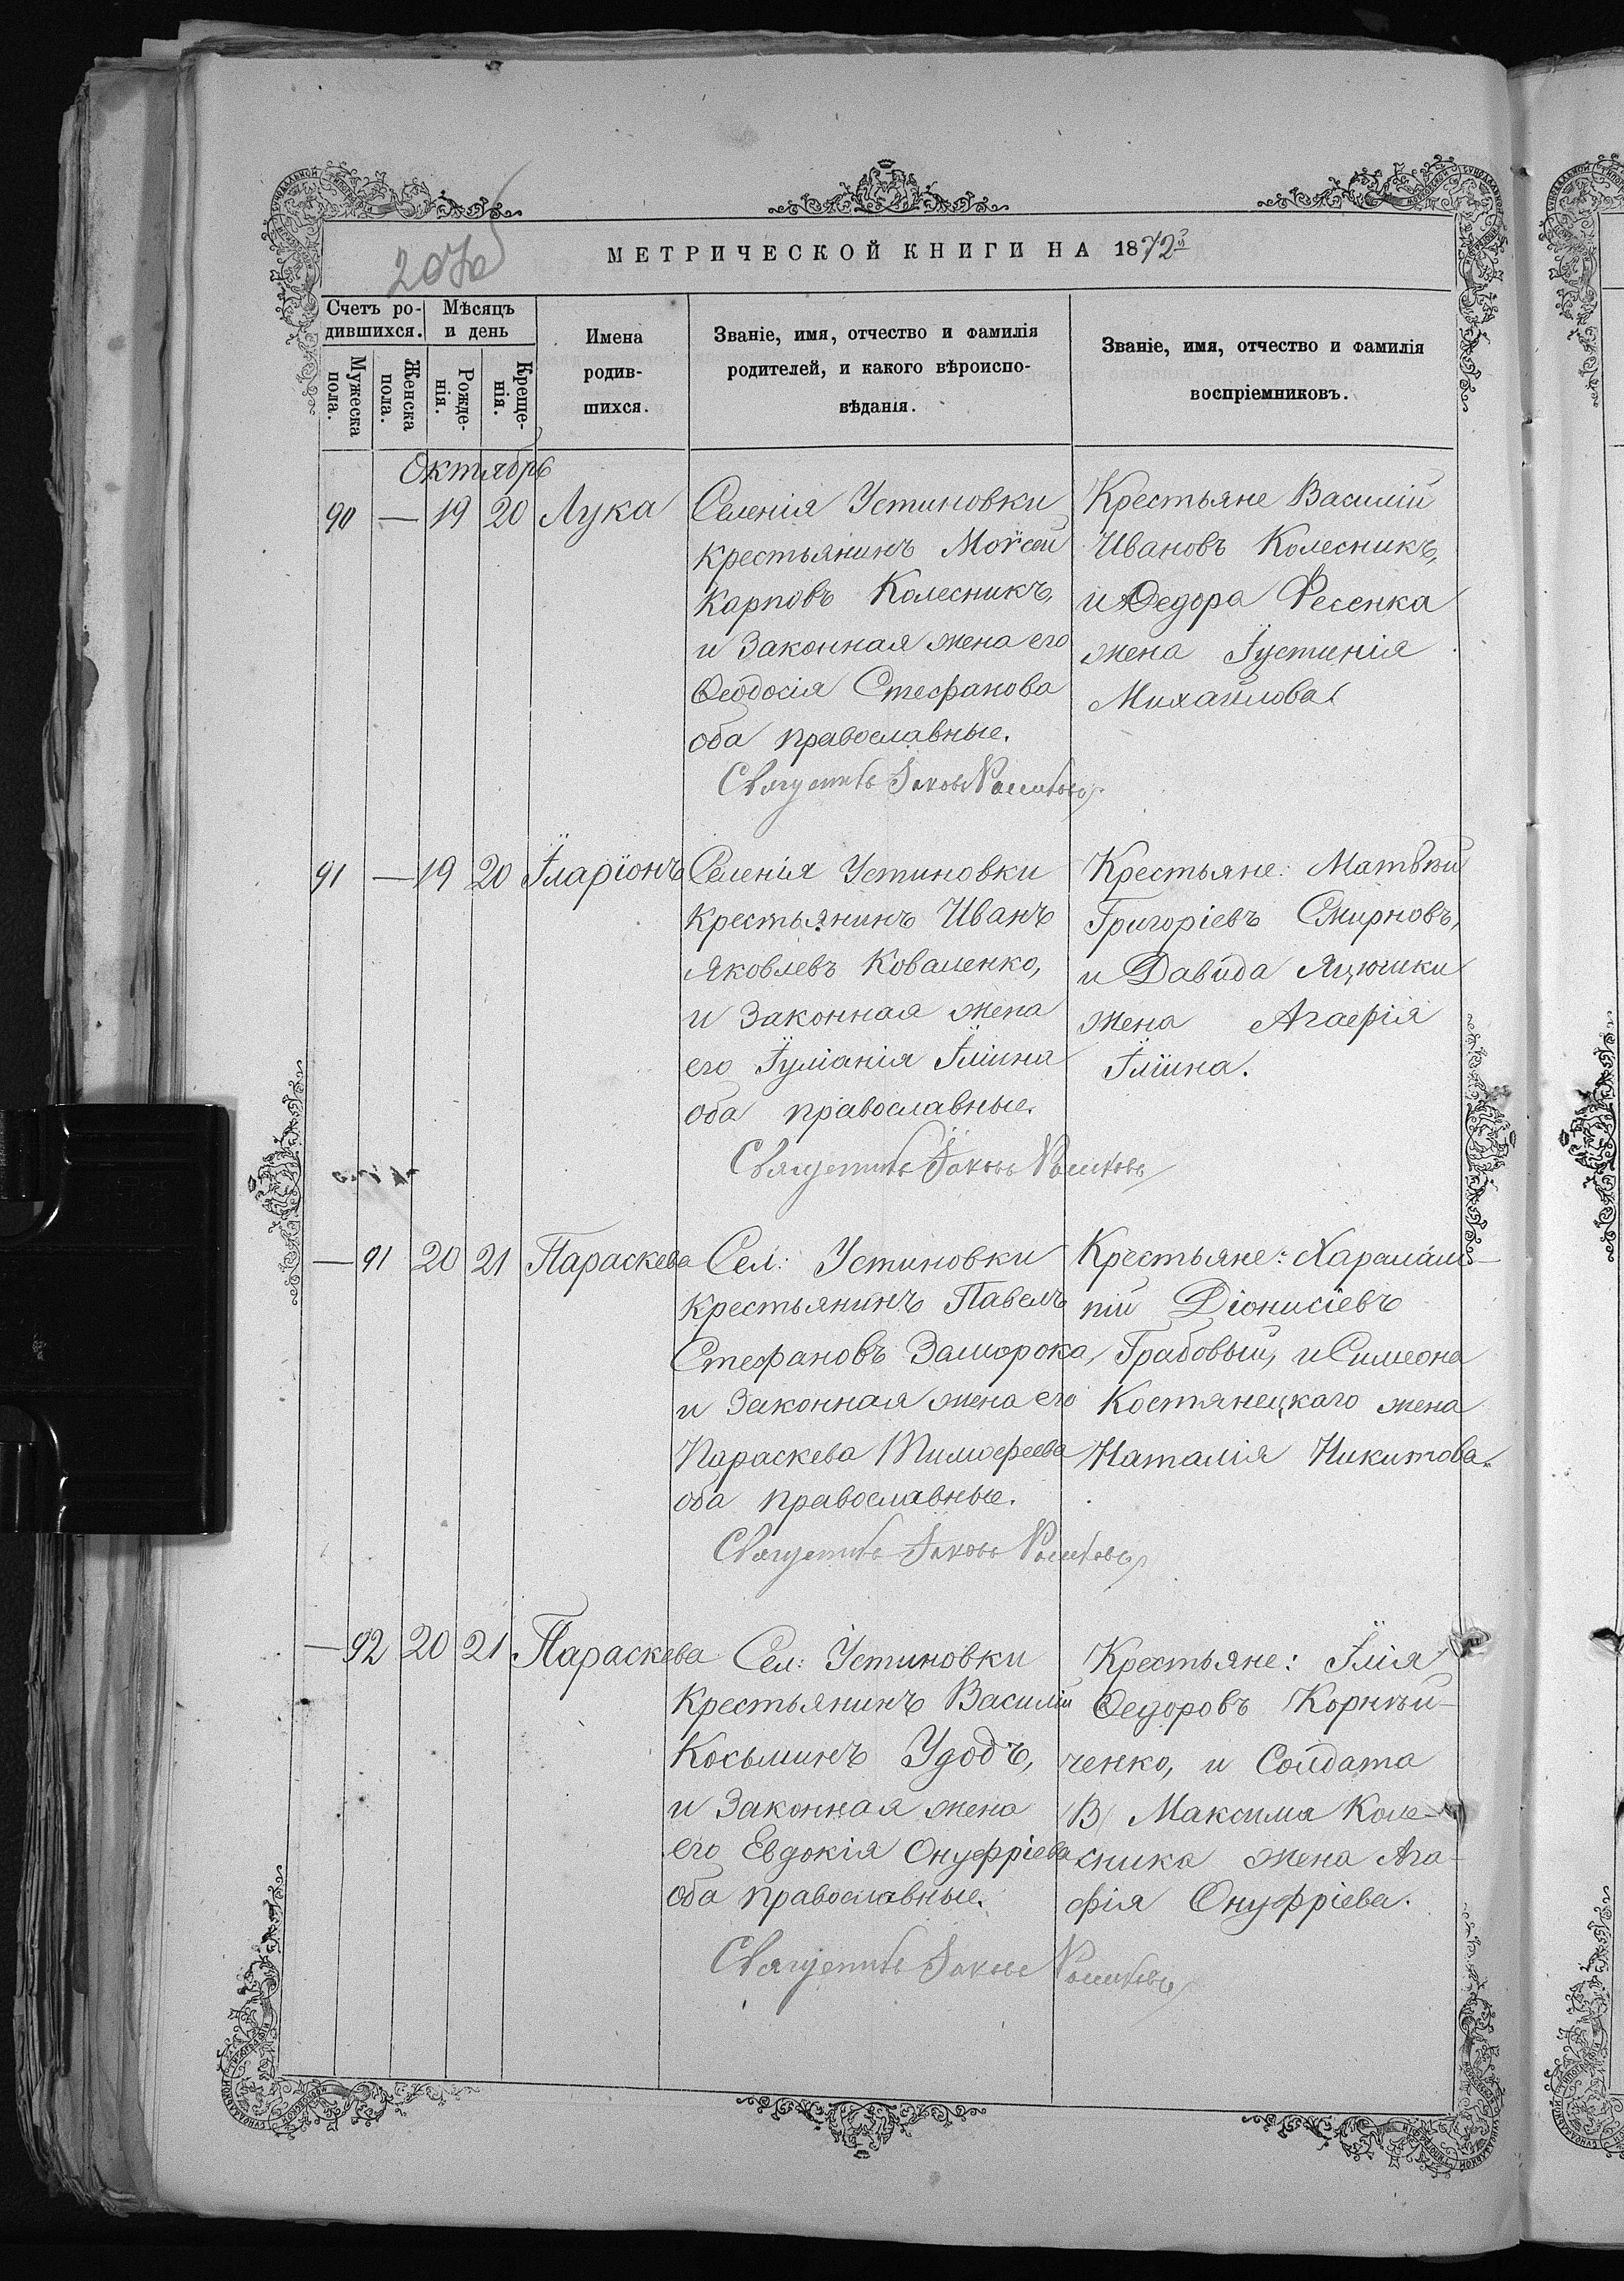 207об
МЕТРИЧЕСКОЙ КНИГИ НА 1872й
Счетъ ро-
дившихся.
Мужеска
пола.
Женска
пола.
Мѣсяцъ
и день
Рожде-
нія.
Креще-
нія.
Имена
родив-
шихся.
Званіе, имя, отчество и фамилія
родителей, и какого вѣроиспо-
вѣданія.
Званіе, имя, отчество и фамилія
воспріемниковъ.
Октябрь
90 — 19 20 Лука
Селенія Устиновки
крестьянинъ Моѵсей
Карповъ Колесникъ,
и Законная жена его
Ѳеодосія Стефанова
оба православные.
Священникъ Іаковъ
Крестьяне Василій
Ивановъ Колесникъ,
и Ѳедора Фесенка
жена Іустинія
Михайлова
91 — 19 20 Іларіонъ
Селенія Устиновки
крестьянинъ Иванъ
Яковлевъ Коваленко,
и Законная жена
его Іуліанія Іліина
оба православные.
Священникъ Іаковъ
Крестьяне: Матвѣй
Григоріевъ Смирновъ,
и Давида Яцюшки
жена Агафія
Іліина.
— 91 20 21 Параскева
Сел: Устиновки
крестьянинъ Павелъ
Стефановъ Заморока,
и Законная жена его
Параскева Тимофеева
оба православные.
Священникъ Іаковъ
Крестьяне: Харалам-
пій Діонисіевъ
Грабовый, и Симеона
Костянецкаго жена
Наталія Никитова.
— 92 20 21 Параскева
Сел: Устиновки
Крестьянинъ Василій
Косьминъ Удодъ,
и Законная жена
его Евдокія Онуфріева
оба православные.
Священникъ Іаковъ
Крестьяне: Ілія
Ѳедоровъ Корнѣй-
ченко, и Солдата
В/ Максима Коле-
сника жена Ага-
фія Онуфріева.